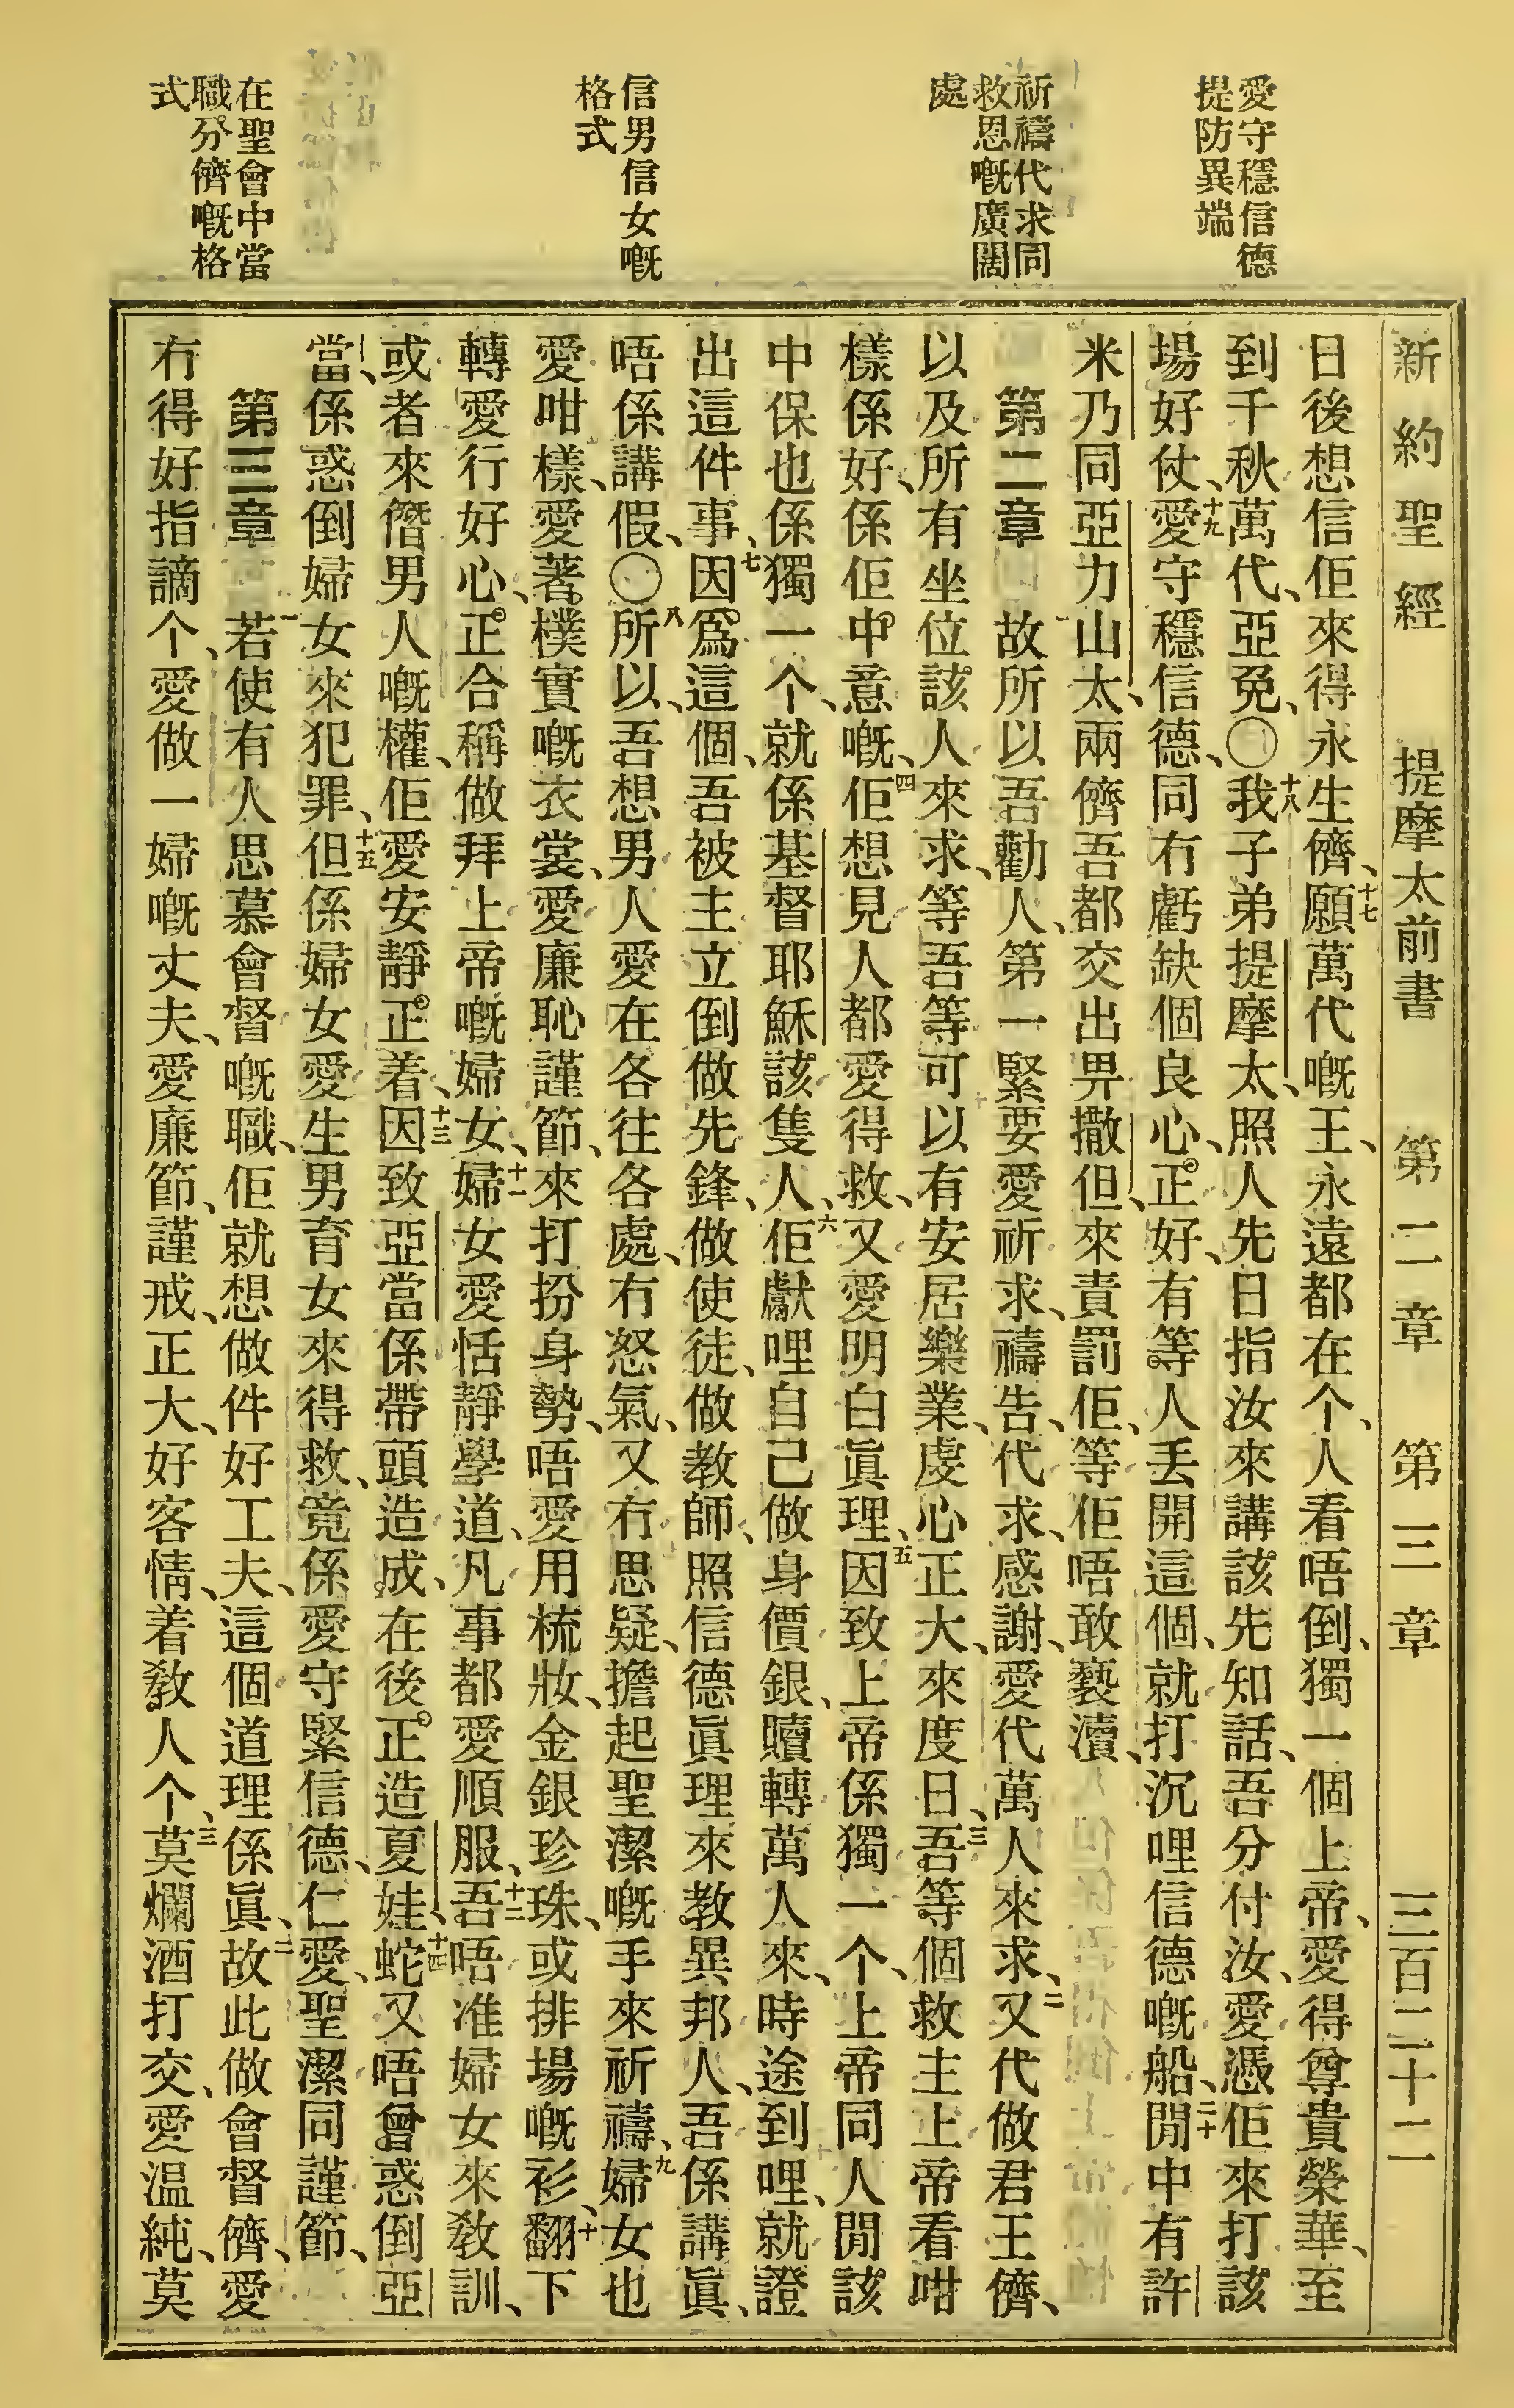 愛守穩信德
提防異端
祈禱代求同
救恩嘅廣闊
處
信男信女嘅
格式
在聖會中當
職分儕嘅格
式
新約聖經 提摩太前書 第二章 第三章 三百二十二
日後想信佢來得永生儕、十七願萬代嘅王、永遠都在个、人看唔倒、獨一個上帝、愛得尊貴榮華、至
到千秋萬代、亞𠒇、〇十八我子弟提摩太、照人先日指汝來講該先知話、吾分付汝、愛憑佢來打該
場好仗、十九愛守穩信德、同冇虧缺個良心、正好、有等人丟開這個、就打沉哩信德嘅船、二十閒中有許
米乃同亞力山太、兩儕吾都交出畀撒但、來責罰佢、等佢唔敢褻瀆、
第二章 一故所以吾勸人、第一緊要愛祈求、禱告、代求、感謝、愛代萬人來求、二又代做君王儕、
以及所有坐位該人來求、等吾等可以有安居樂業、虔心正大、來度日、三吾等個救主上帝看咁
樣係好、係佢中意嘅、四佢想見人都愛得救、又愛明白眞理、五因致上帝係獨一个、上帝同人閒該
中保也係獨一个、就係基督耶穌該隻人、六佢獻哩自己做身價銀、贖轉萬人來、時途到哩、就證
出這件事、七因爲這個、吾被主立倒做先鋒、做使徒、做教師、照信德眞理來教異邦人、吾係講眞、
唔係講假、〇八所以、吾想男人愛在各往各處、冇怒氣、又冇思疑、擔起聖潔嘅手來祈禱、九婦女也
愛咁樣、愛著樸實嘅衣裳、愛廉恥謹節、來打扮身勢、唔愛用梳妝、金銀珍珠、或排場嘅衫、十翻下
轉愛行好心、正合稱做拜上帝嘅婦女、十一婦女愛恬靜學道、凡事都愛順服、十二吾唔准婦女來教訓、
或者來僭男人嘅權、佢愛安靜正着、十三因致亞當係帶頭造成、在後正造夏娃、十四蛇又唔曾惑倒亞
當、係惑倒婦女來犯罪、十五但係婦女愛生男育女來得救、竟係愛守緊信德、仁愛、聖潔同謹節、
第三章 一若使有人思慕會督嘅職、佢就想做件好工夫、這個道理係眞、二故此做會督儕、愛
冇得好指謫个、愛做一婦嘅丈夫、愛廉節、謹戒、正大、好客情、着教人个、三莫爛酒打交、愛温純、莫